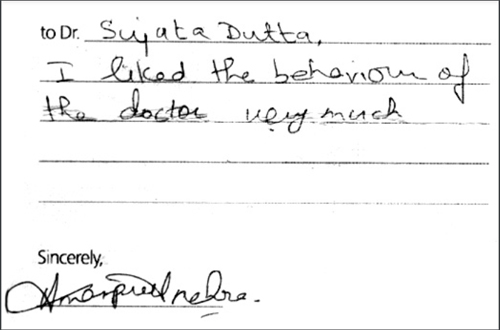 to Dr. Sujata Dutta,
I liked the behaviour of
the doctor very much
Sincerely,